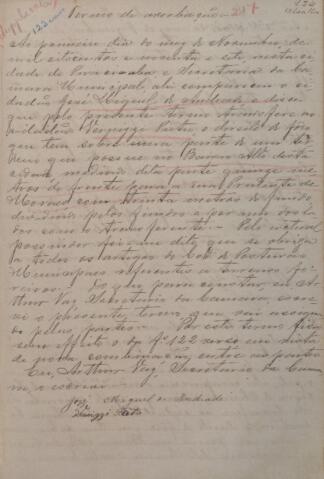 Termo de
Ao primeiro dia do mez de Novembro de
mil oitocentos e noventa e sete, nesta ci
dade de e Secretaria da Ca
mara Municipal, ahi compareceu o ci
dadão José Miguel de Andrade e disse
que pelo presente termo transfere ao
cidadão Vertuzzi o direito de fôro
que tem sobre uma parte de um ter
reno que possue no Bairro Alto desta
cidade medindo dita parte quinze me
tros de frente para a rua Prudente de
Moraes com trinta metros de fundo,
dividindo pelos fundos e por um dos la
dos com o transferente. Pelo
possuidor foi me dito que se obriga
a todos os artigos do Cod. de Posturas
Municipaes referentes a terrenos fo
reiros. Do que para constar, eu Ar
thur Vaz, Secretario da Camara, escre
vi o presente termo que vai assigna
do pelas partes. Por este termo fica
sem effeito o de fs 122 verso em vista
de nova combinação entre as partes
Eu, Arthur Vaz, Secretario da Cama
ra, o escrevi
José Miguel de Andrade